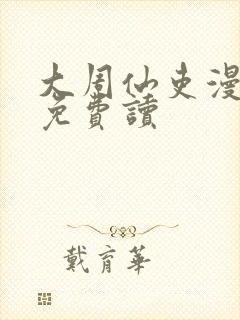 大周仙吏漫
免費讀
戴育華